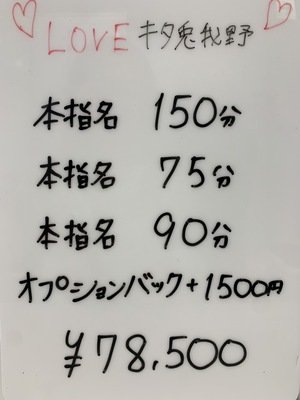 LOVE キタ兎我野
本指名 150分
本指名 75分
本指名 90分
オプションバック+1500円
¥78,500